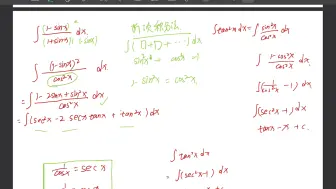 ∫ (1-sinx) / (1+sinx)(1-sinx) dx
∫ (1-sinx)² / cos²x dx
= ∫ 1-2sinx+sin²x / cos²x dx
= ∫(sec²x-2 secx tanx + tan²x) dx
1/cosx = sec x
dx
sin²x + cos²x = 1
1-sin²x = cos²x
∫tan²x dx = ∫ sin²x/cos²x dx
∫ 1-cos²x / cos²x dx
∫(1/cos²x - 1) dx
∫(sec²x-1) dx
tanx - x + c.
∫tan²x dx
= ∫(sec²x-1) dx